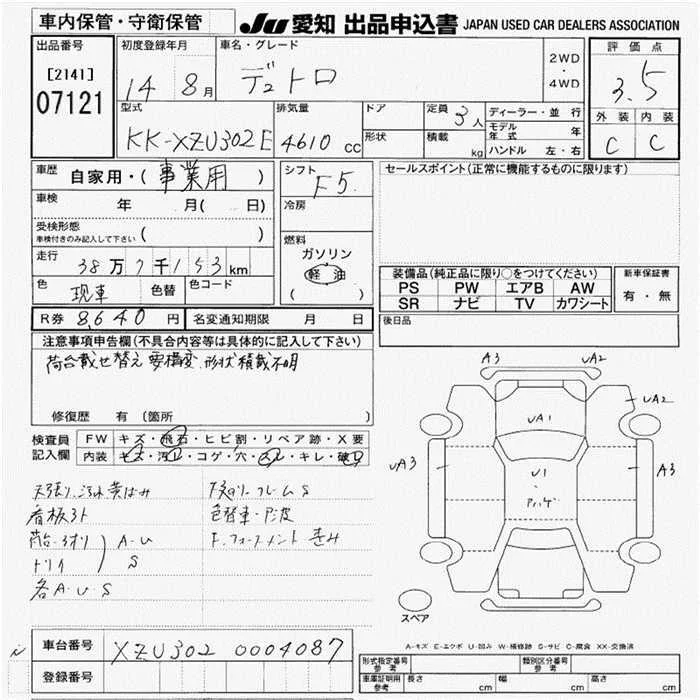 車内保管・守衛保管
JU 愛知 出品申込書 JAPAN USED CAR DEALERS ASSOCIATION
出品番号 初度登録年月 車名・グレード 2WD・4WD 評価点
[2141]
07121 14 8月 デュトロ 3.5
型式 排気量 ドア 定員 3人 ディーラー・並行 外装 内装
KK-XZU302E 4610 cc 形状 積載 kg モデル年式 年 C C
ハンドル 左・右
車歴 自家用・(事業用) シフト F5 セールスポイント(正常に機能するものに限ります)
車検 年 月( 日) 冷房
受検形態 ( )
車検付きのみ記入して下さい
燃料
走行 38万7千153km ガソリン
軽油
( )
色 現車 色替 色コード
装備品(純正品に限り○をつけてください) 新車保証書
PS PW エアB AW 有・無
SR ナビ TV カワシート
R券 8,640円 名変通知期限 月 日 後日品
注意事項申告欄(不具合内容等は具体的に記入して下さい)
荷台載せ替え要構変、形状積載不明
修復歴 有 (箇所 )
検査員記入欄 FW キズ・飛石・ヒビ割・リペア跡・X要
内装 キズ・汚レ・コゲ・穴・スレ・キレ・破レ
看板跡
A・U
S
各A・U・S
A3 UA2
UA2
UA1
UA3 U1 A3
スペア
A-キズ E-エクボ U-凹み W-補修跡 S-サビ C-腐食 XX-交換済
車台番号 XZU302 0004087
登録番号
形式指定番号 参考 類別区分番号 参考
車庫証明用 参考 長さ cm 幅 cm 高さ cm